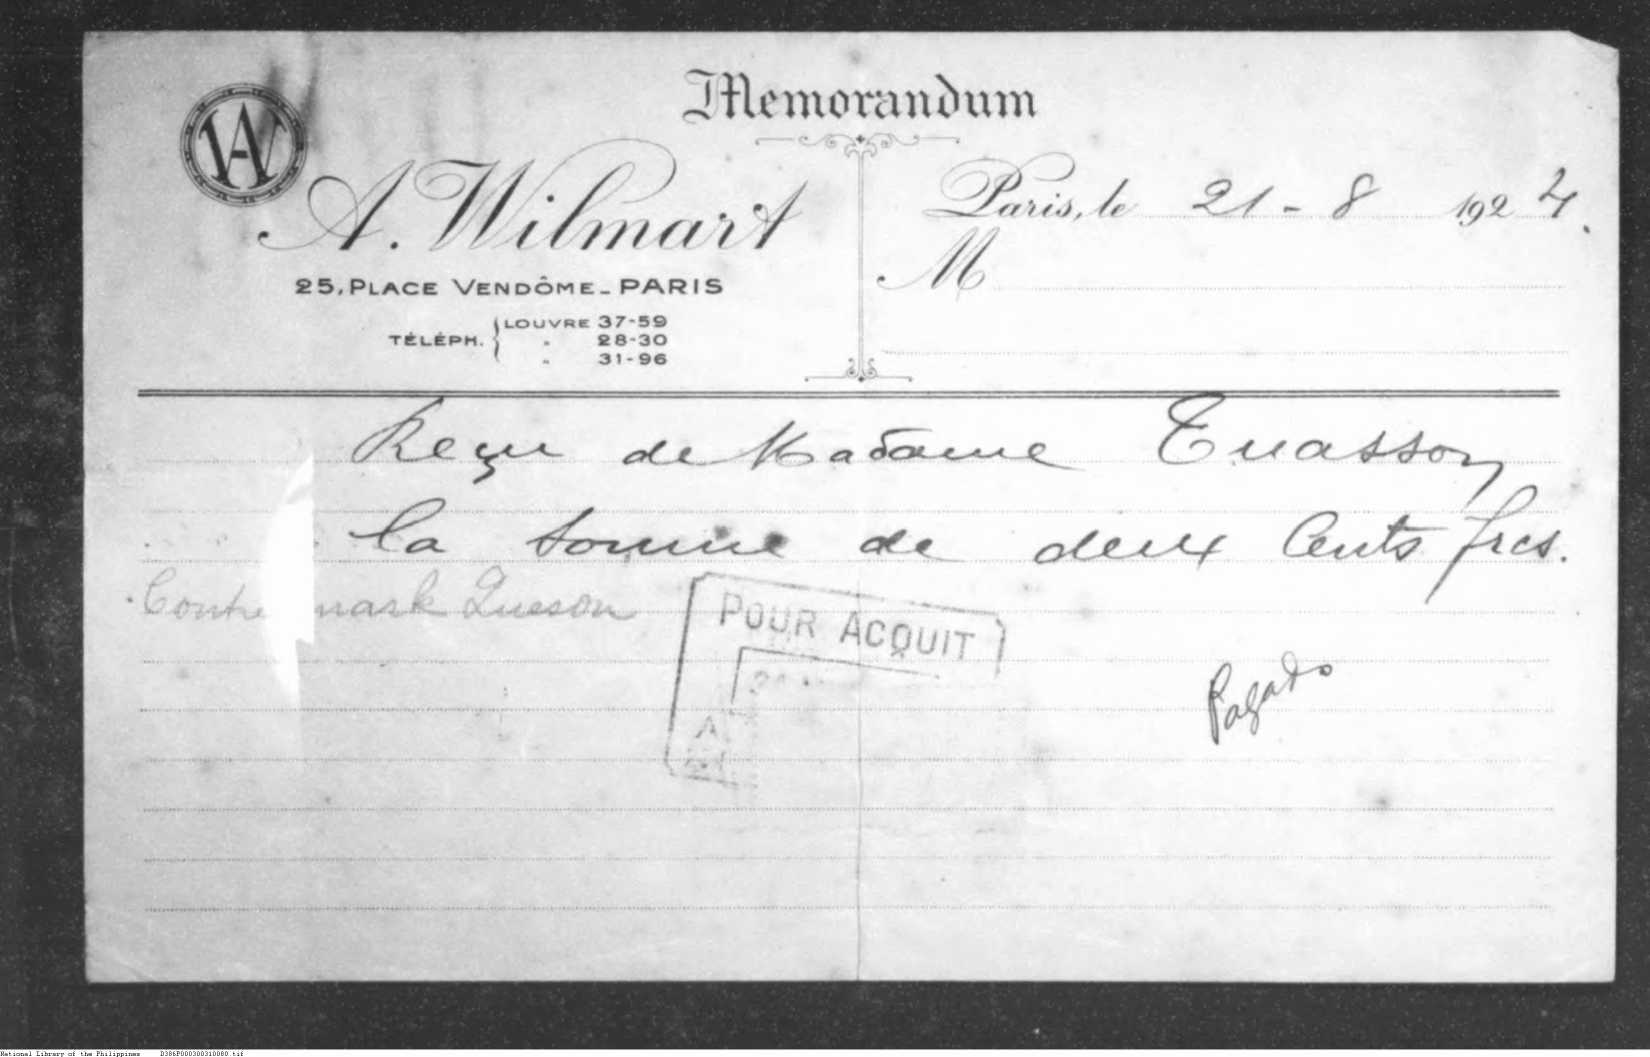 Memorandum
WA
A. Wilmart
25, PLACE VENDÔME - PARIS
TÉLÉPH. { LOUVRE 37-59
" 28-30
" 31-96
Paris, le 21 - 8 1924.
M
Reçu de Madame Tuasson
la somme de deux Cents frcs.
Contre mark Queson
POUR ACQUIT
A
Pagado
National Library of the Philippines D386P000300310080.tif